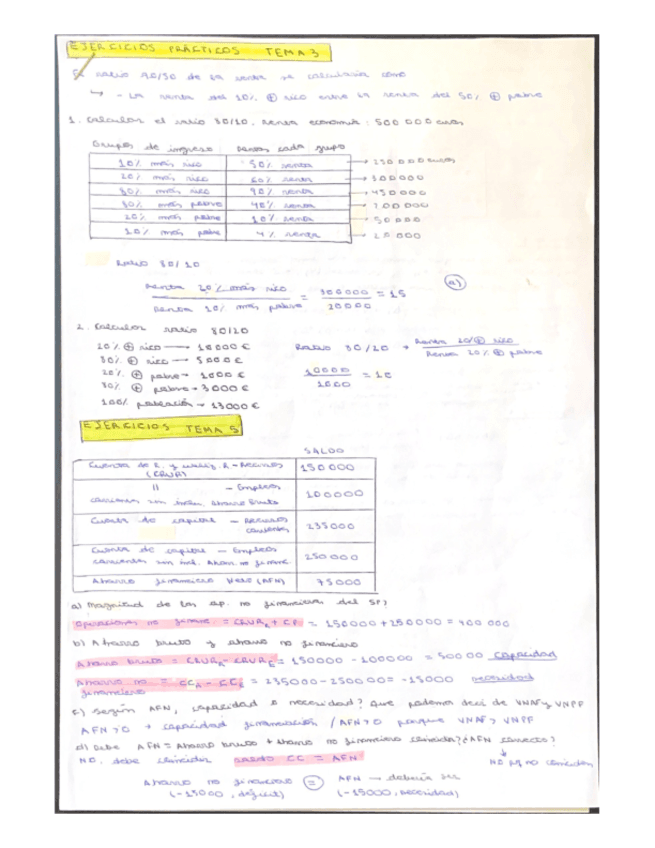 EJERCICIOS PRÁCTICOS TEMA 3
El ratio 90/50 de la renta se calcularía como
↳ - La renta del 10% ⊕ rico entre la renta del 50% ⊕ pobre
1. Calcular el ratio 80/10, renta economía: 500 000 euros
Grupos de ingreso renta cada grupo
10% más rico 50% renta → 250 000 euros
20% más rico 60% renta → 300000
80% más rico 90% renta → 450000
80% más pobre 40% renta → 200000
20% más pobre 10% renta → 50000
10% más pobre 4% renta → 20000
Ratio 80/10
Renta 20% más rico / Renta 10% más pobre = 300000 / 20000 = 15 (a)
2. Calcular ratio 80/20
20% ⊕ rico → 10000 €
50% ⊕ rico → 5000 €
20% ⊕ pobre → 1000 €
80% ⊕ pobre → 3000 €
100% población → 13000 €
Ratio 80/20 → Renta 20% ⊕ rico / Renta 20% ⊕ pobre
10000 / 1000 = 10
EJERCICIOS TEMA 5
SALDO
Cuenta de R. y utiliz. R - Recursos (CRUR) 150000
" - Empleos corrientes sin inclu. ahorro bruto 100000
Cuenta de capital - Recursos 235000
Cuenta de capital - Empleos corrientes sin incl. Ahorr. no financ. 250000
Ahorro financiero Neto (AFN) 75000
a) Magnitud de las op. no financieras del SP?
Operaciones no financ. = CRUR + CP = 150000 + 250000 = 400 000
b) Ahorro bruto y ahorro no financiero
Ahorro bruto = CRUR - CRUR E = 150000 - 100000 = 50000 capacidad
Ahorro no financiero = CC - CC E = 235000 - 250000 = -15000 necesidad
c) Según AFN, capacidad o necesidad? Que podemos decir de VNAF y VNPF
AFN > 0 → capacidad financiación / AFN > 0 porque VNAF > VNPF
d) Debe AFN = Ahorro bruto + Ahorro no financiero coincidir? ¿AFN correcto?
NO, debe coincidir saldo CC = AFN NO no coinciden
Ahorro no financiero = AFN → debería ser
(-15000, déficit) (-15000, necesidad)